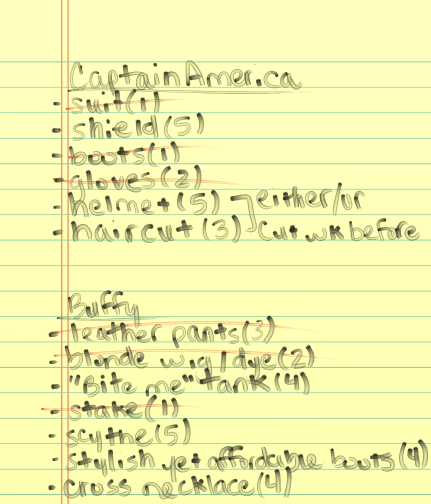 Captain America
- suit(1)
- shield(5)
- boots(1)
- gloves(2)
- helmet(5) ] either/or
- haircut(3) Cut wk before
Buffy
- leather pants(3)
- blonde wig/dye(2)
- "Bite me" tank(4)
- stake(1)
- scythe(5)
- stylish yet affordable boots(4)
- cross necklace(4)